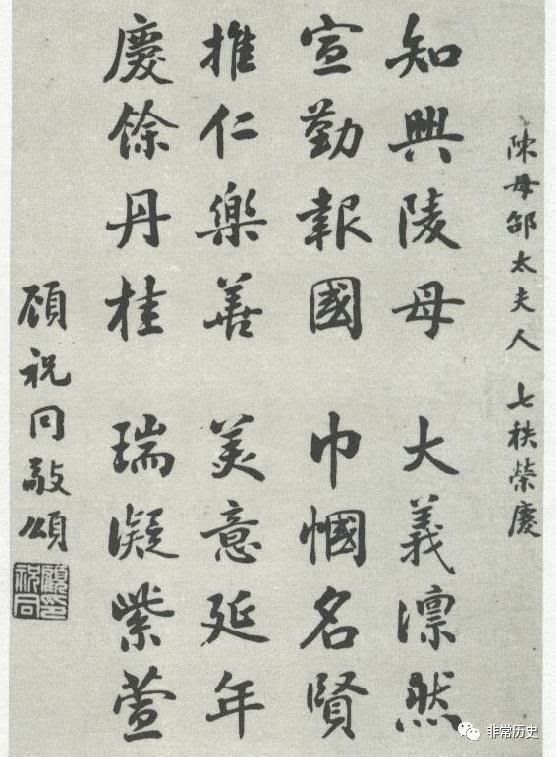 陳母邵太夫人 七秩榮慶
知興陵母 大義凛然
宣勤報國 巾幗名賢
推仁樂善 美意延年
慶餘丹桂 瑞凝紫萱
顧祝同敬頌
顧祝同印
非常历史